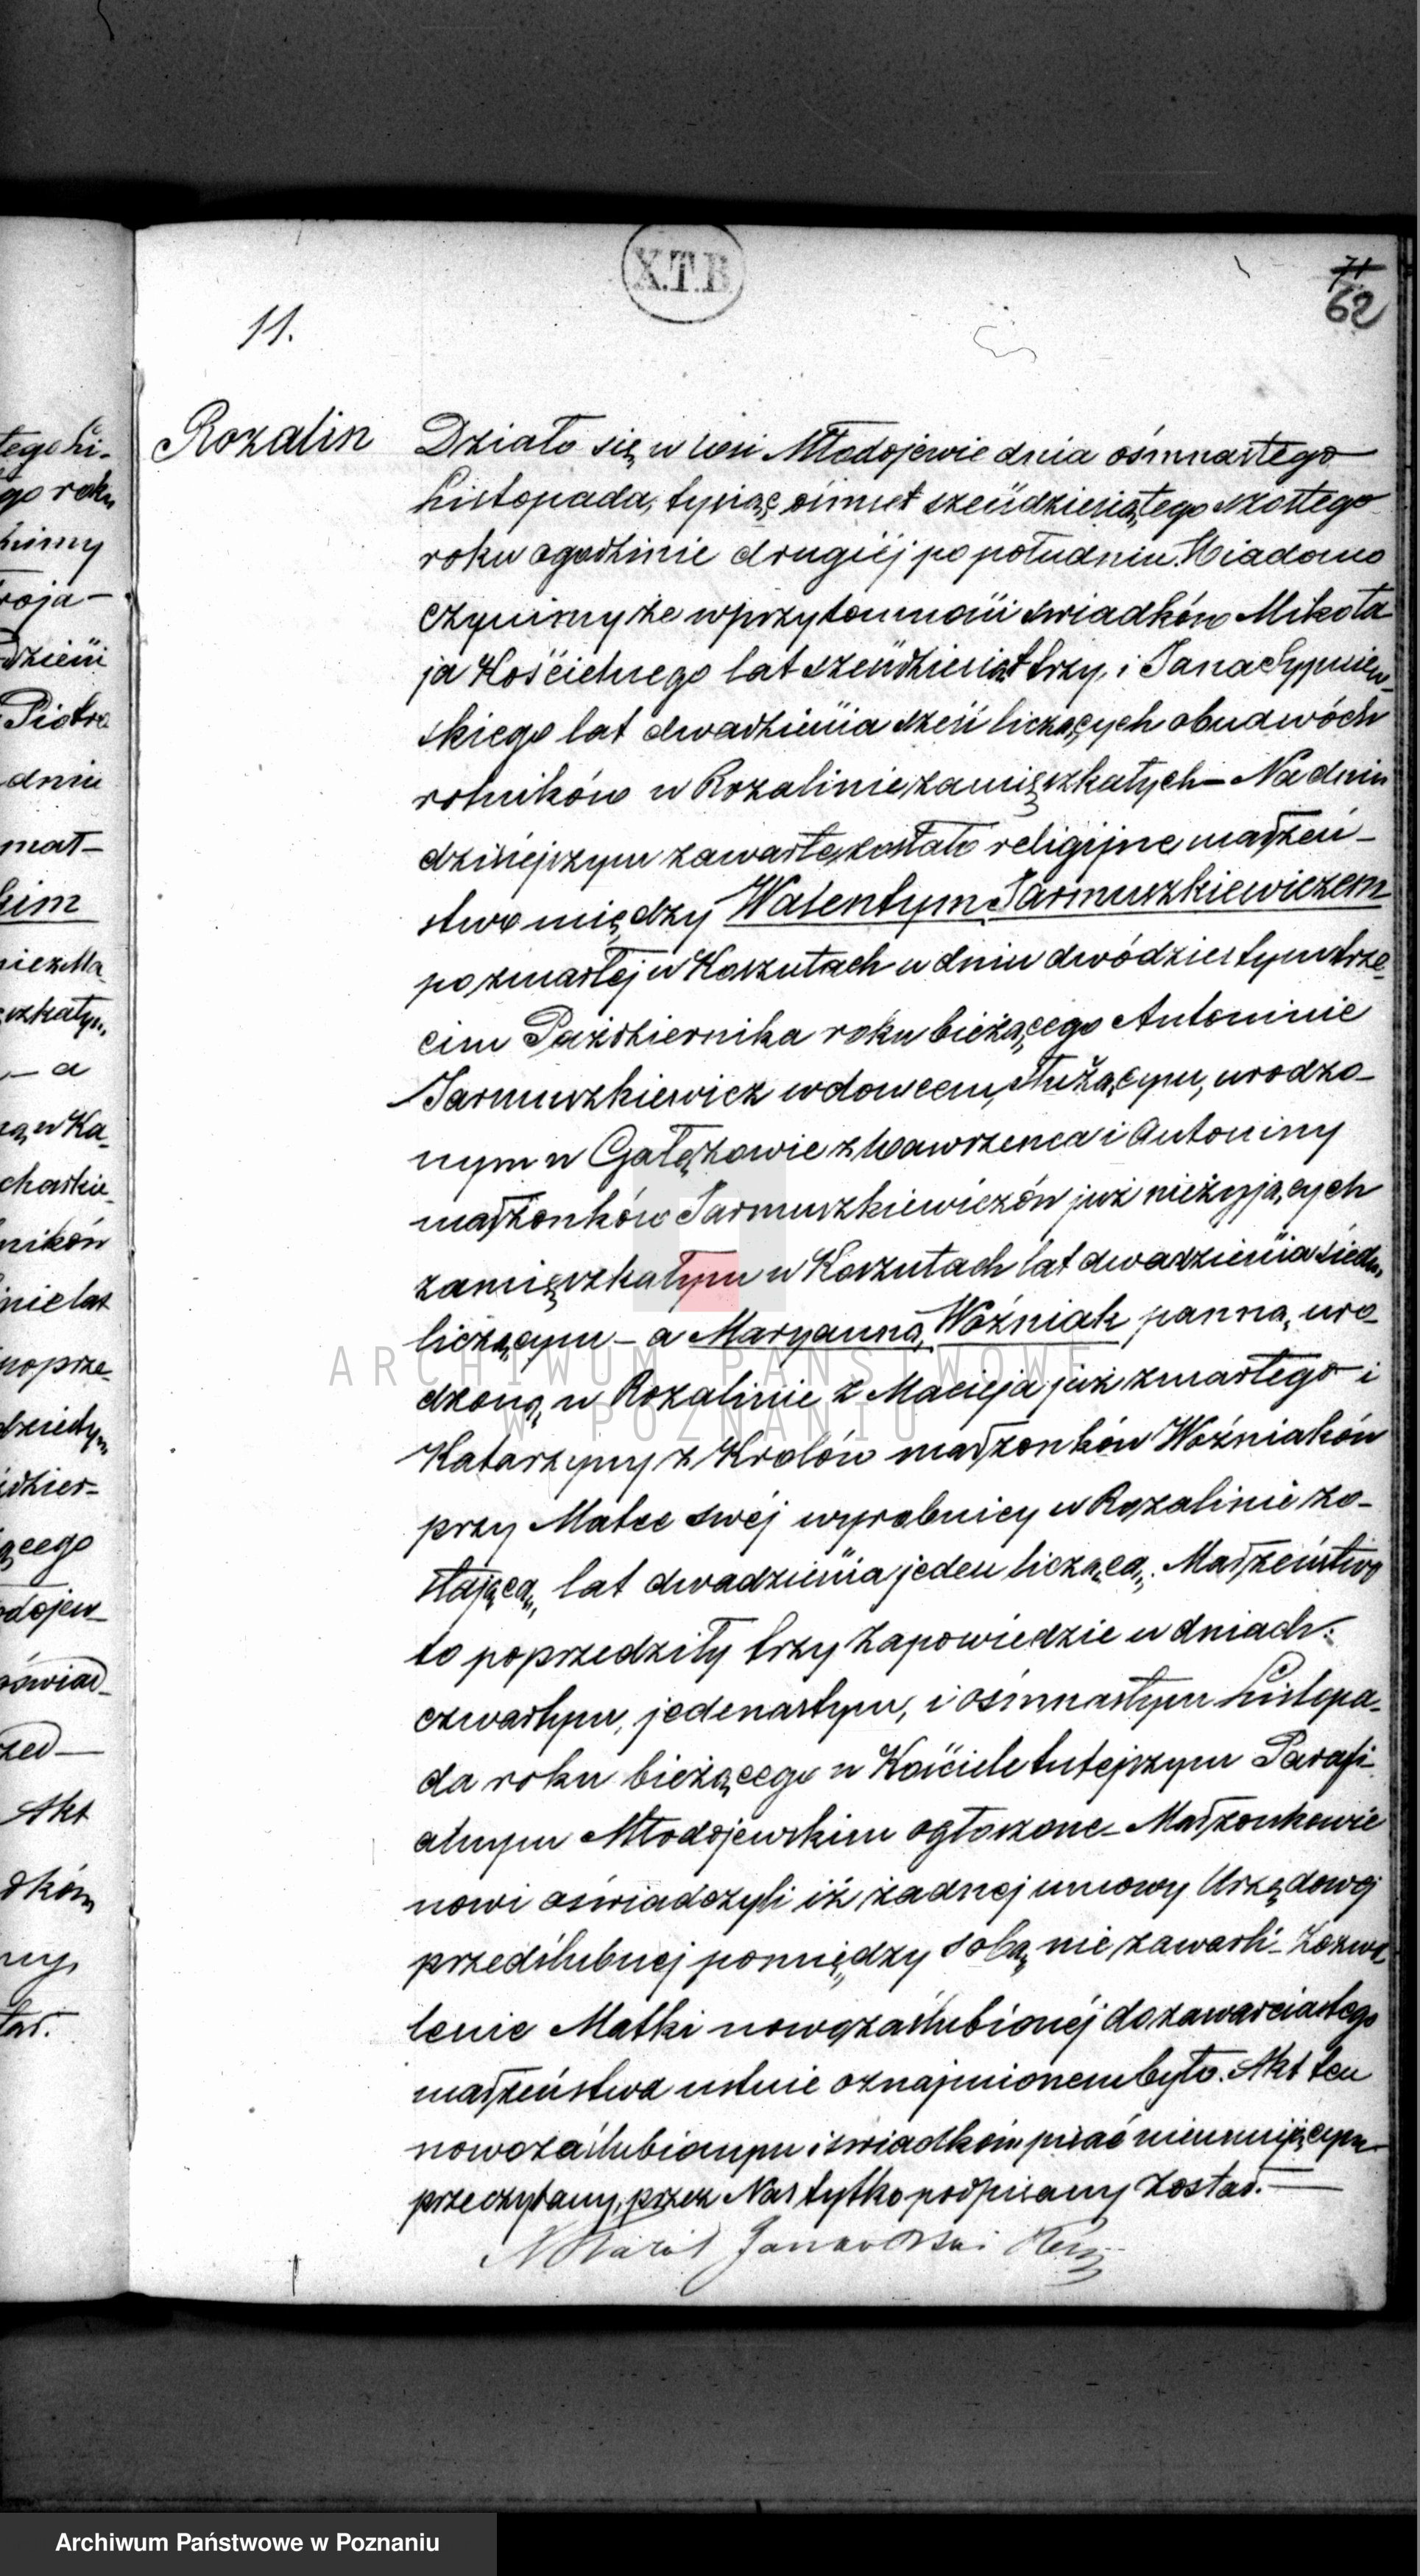 X.T.B
71
62
11.
Rozalin
Działo się w wsi Młodojewie dnia ośmnastego
Listopada, tysiąc ośmset sześćdziesiątego szóstego
roku o godzinie drugiéj po południu. Wiadomo
czynimy że w przytomności swiadków Mikoła
ja Kościelnego lat sześćdziesiąt trzy, i Jana Sypniew-
skiego lat dwadzieścia sześć liczących obudwóch
rolników w Rozalinie zamięszkałych – Na dniu
dzisiejszym zawarte zostało religijne małżeń-
stwo między Walentym Jarmuszkiewiczem
po zmarłej w Koszutach w dniu dwódziestym trze-
cim Października roku bieżącego Antoninie
Jarmuszkiewicz wdowcem, służącym, urodzo-
nym w Gałęzowie z Wawrzenca i Antoniny
małżonków Jarmuszkiewiczów już nieżyjących
zamięszkałym w Koszutach lat dwadzieścia siedm
liczącym – a Maryanną Woźniak panną, uro-
dzoną w Rozalinie z Macieja już zmarłego i
Katarzyny z Krolów małżonków Woźniaków
przy Matce swéj wyrobnicy w Rozalinie zo-
stającą, lat dwadzieścia jeden liczącą. Małżeństwo
to poprzedziły trzy zapowiedzie w dniach:
czwartym, jedenastym, i ośmnastym Listopa-
da roku bieżącego w Kościele tutejszym Parafi-
alnym Młodojewskim ogłoszone – Małżonkowie
nowi oświadczyli iż żadnej umowy Urzędowej
przedślubnej pomiędzy sobą nie zawarli – Zezwo-
lenie Matki nowozaślubionéj do zawarcia tego
małżeństwa ustnie oznajmionem było. Akt ten
nowozaślubionym i swiadkom pisać nieumiejącym
przeczytany, przez Nas tylko podpisany został. –
ARCHIWUM PAŃSTWOWE
W POZNANIU
Archiwum Państwowe w Poznaniu